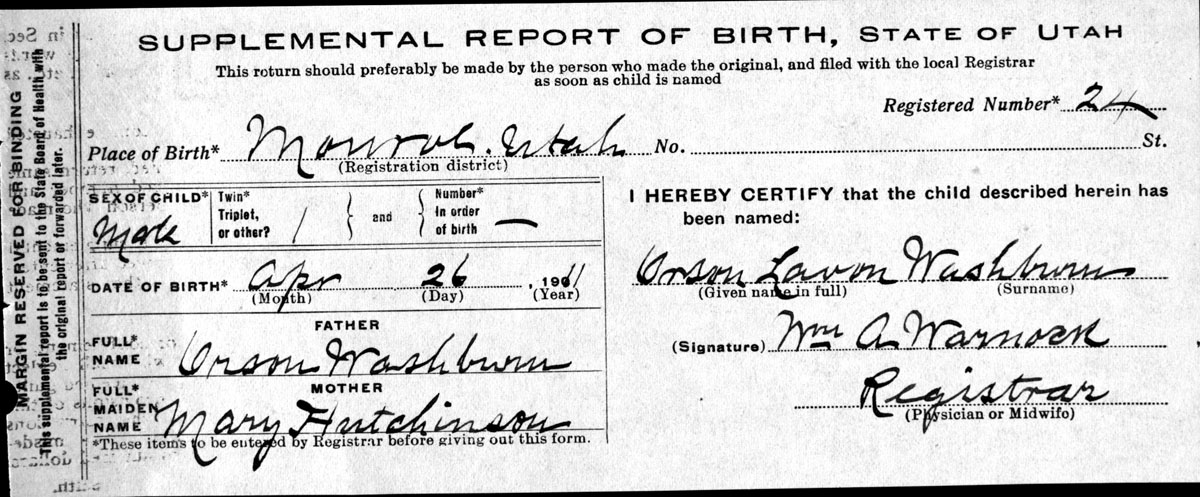 SUPPLEMENTAL REPORT OF BIRTH, STATE OF UTAH
This return should preferably be made by the person who made the original, and filed with the local Registrar
as soon as child is named
Registered Number* 24
Place of Birth* Monroe. Utah No. St.
(Registration district)
SEX OF CHILD* Male
Twin* Triplet, or other? / } and { Number* In order of birth —
DATE OF BIRTH* Apr 26, 1911
(Month) (Day) (Year)
FATHER
FULL* NAME Orson Washburn
MOTHER
FULL* MAIDEN NAME Mary Hutchinson
*These items to be entered by Registrar before giving out this form.
I HEREBY CERTIFY that the child described herein has
been named:
Orson Lavon Washburn
(Given name in full) (Surname)
(Signature) Wm A. Warnock
Registrar
(Physician or Midwife)
MARGIN RESERVED FOR BINDING
This supplemental report is to be sent to the State Board of Health with
the original report or forwarded later.